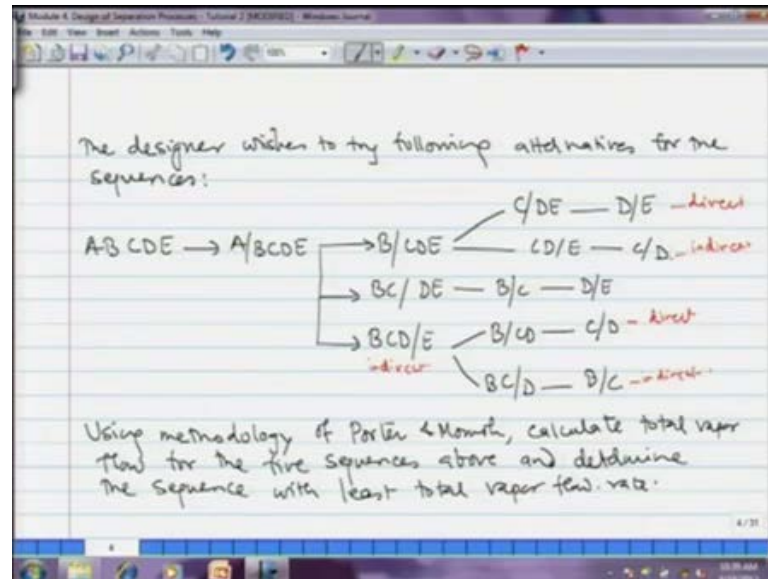 Module 4. Design of Separation Processes - Tutorial 2 [MODIFIED] - Windows Journal
File Edit View Insert Actions Tools Help
The designer wishes to try following alternatives for the
sequences:
C/DE — D/E - direct
ABCDE → A/BCDE → B/CDE CD/E — C/D - indirect
→ BC/DE — B/C — D/E
→ BCD/E B/CD — C/D - direct
indirect
BC/D — B/C - indirect
Using methodology of Porter & Momoh, calculate total vapor
flow for the five sequences above and determine
the sequence with least total vapor flow rate.
4/31